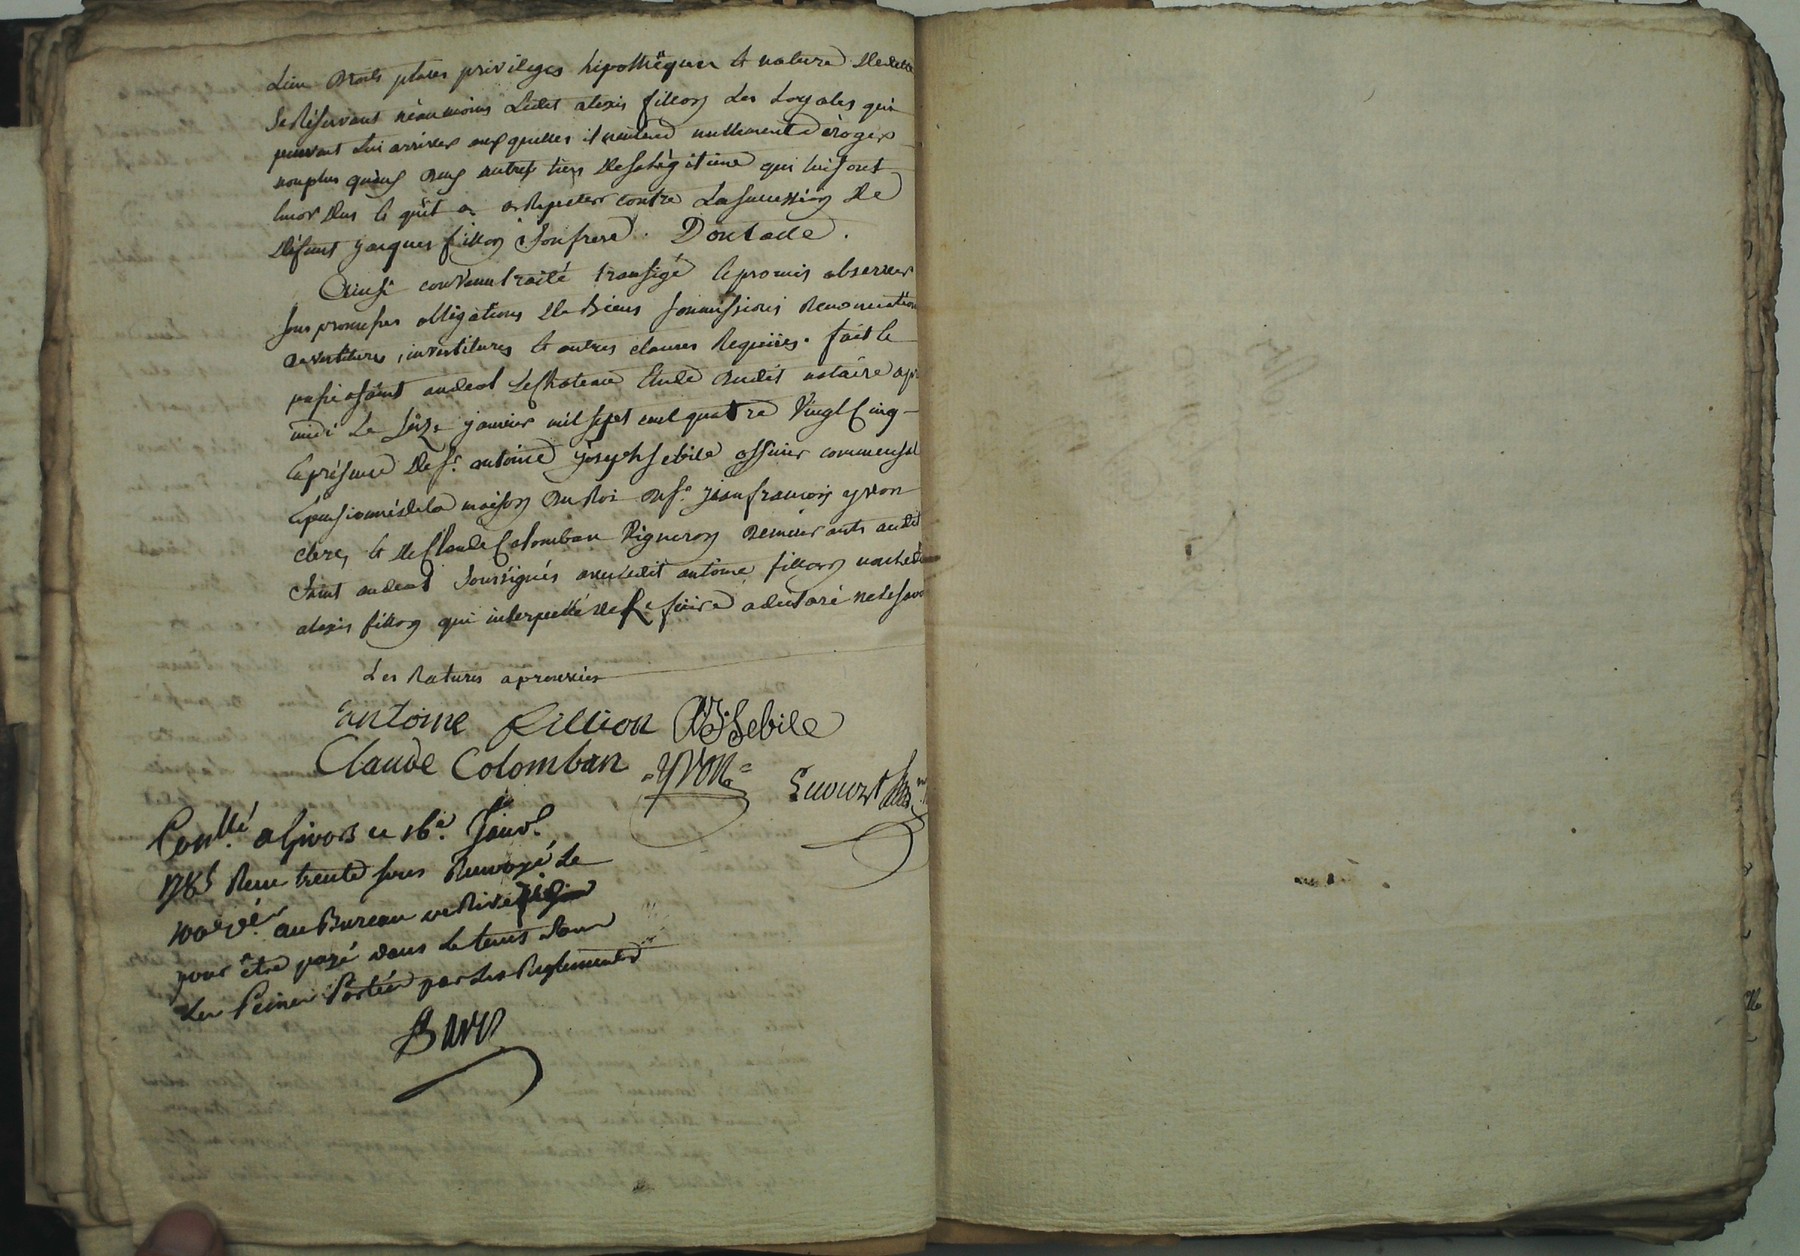 Lieu droits places privileges hipothèques & nature de
Se Réservant néanmoins Ledit alexis fillion Les Loyales qui
peuvent Lui arriver auxquelles il n'entend nullement déroger
non plus qu'aux autres tiers de sa légitime qui lui sont
encor dus & qu'il a à Repeter contre La succession de
défunt jacques fillion son frere. Dont acte.
Ainsi convenu traité transigé & promis observer
sous promesses obligations de Biens soumissions Renonciations
devestitures, investitures & autres clauses Requises. fait &
passé à saint andeol Le Chateau Etude dudit notaire après
midi Le seize janvier mil sept cent quatre Vingt Cinq
En présence de Sr. antoine joseph sebile officier commensal
& pensionné de la maison du Roi du Sr. jean francois yvon
clerc, & de Claude Colomban Vigneron demeurants audit
saint andeol soussignés avec ledit antoine fillion non ledit
alexis fillion qui interpellé de Le faire a déclaré ne le savoir
Les Ratures aprouvées
antoine fillion AJSebile
Claude Colomban yvon
Conllé a Givors ce 16e. Janvr.
1785 Reçu trente sous Renvoyé Le
100e dr. au Bureau de Rive
pour être payé dans Le tems sous
Les Peines Portées par Les Reglements